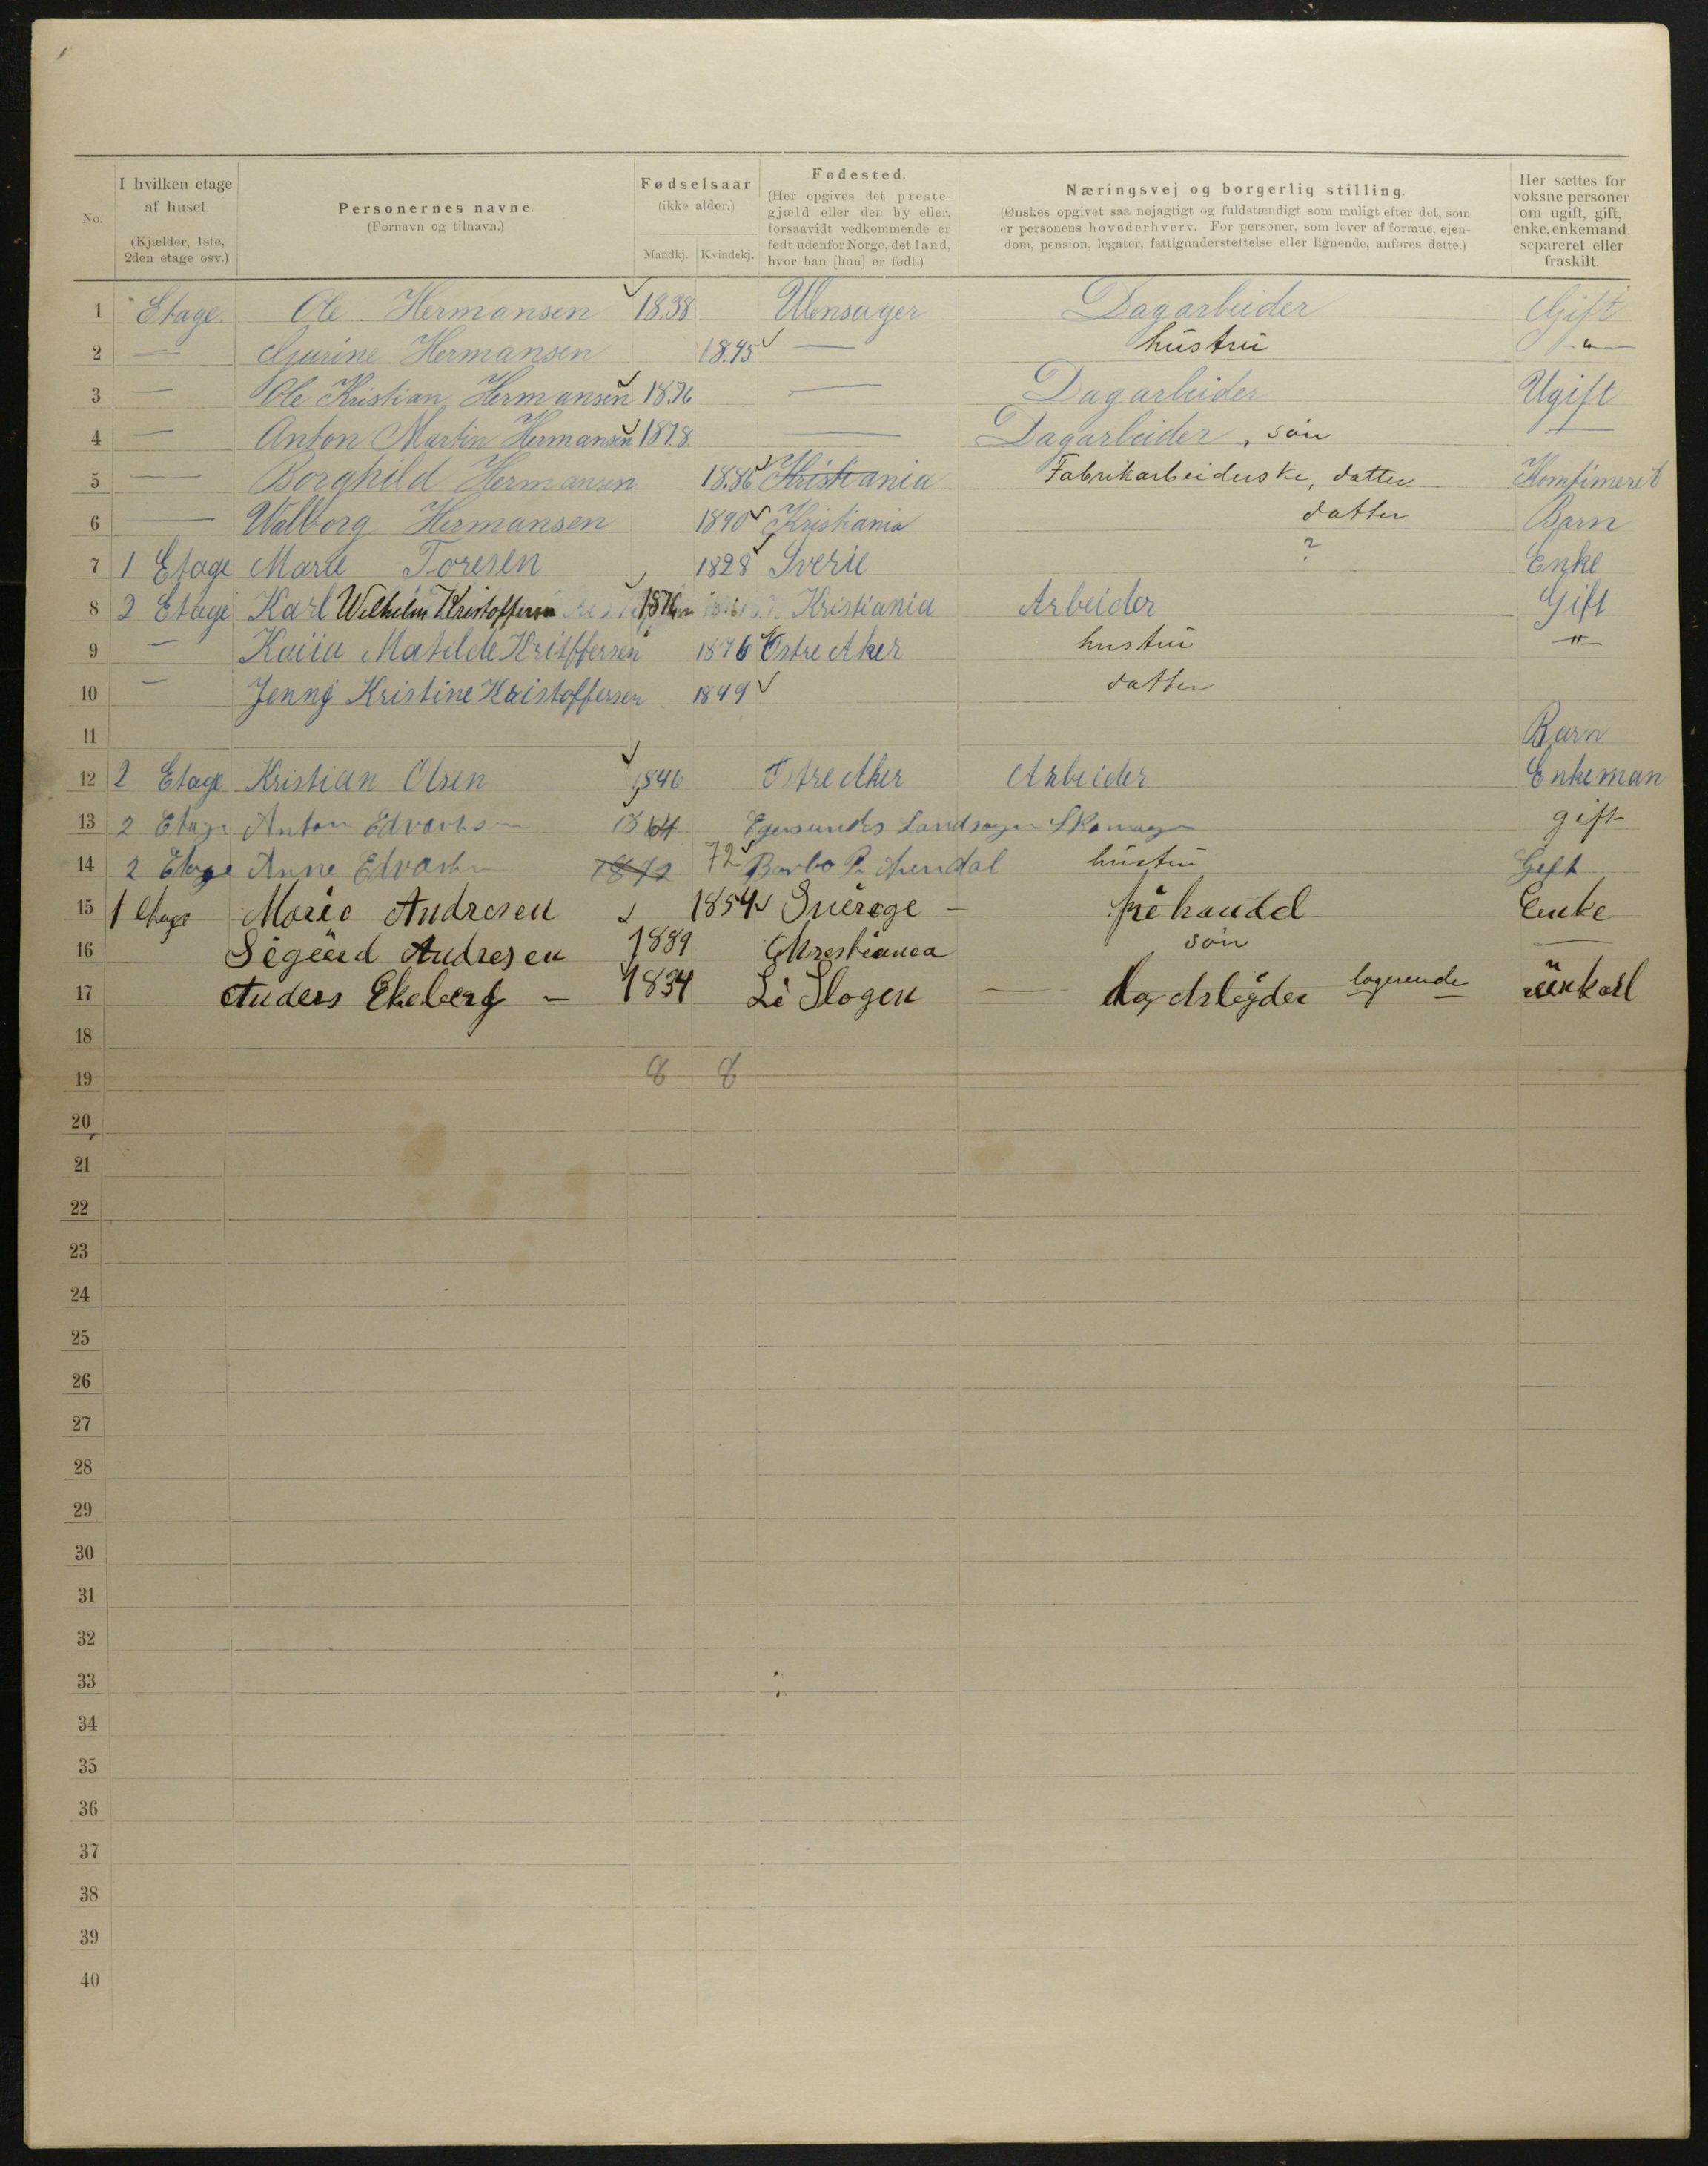 No. I hvilken etage af huset. (Kjælder, 1ste, 2den etage osv.) Personernes navne. (Fornavn og tilnavn.) Fødselsaar (ikke alder.) Mandkj. Kvindekj. Fødested. (Her opgives det prestegjæld eller den by eller, forsaavidt vedkommende er født udenfor Norge, det land, hvor han [hun] er født.) Næringsvej og borgerlig stilling. (Ønskes opgivet saa nøjagtigt og fuldstændigt som muligt efter det, som er personens hovederhverv. For personer, som lever af formue, ejendom, pension, legater, fattigunderstøttelse eller lignende, anføres dette.) Her sættes for voksne personer om ugift, gift, enke, enkemand, separeret eller fraskilt.
1 Etage. Ole Hermansen 1838 Ulensager Dagarbeider Gift
2 — Gurine Hermansen 1845 — hustru — " —
3 — Ole Kristian Hermansen 1876 — Dagarbeider Ugift
4 — Anton Martin Hermansen 1878 — Dagarbeider, søn —
5 — Borghild Hermansen 1886 Kristiania Fabrikarbeiderske, datter Komfimeret
6 — Walborg Hermansen 1890 Kristiania datter Barn
7 1 Etage Marie Toresen 1828 Sverie ? Enke
8 2 Etage Karl Wilhelm Kristoffersen 1876 Kristiania Arbeider Gift
9 — Kaiia Matilde Kritffersen 1876 Østre Aker hustru — " —
10 — Jenny Kristine Kristoffersen 1899 datter
11 Barn
12 2 Etage Kristian Olsen 1846 Østre Aker Arbeider Enkeman
13 2 Etage Anton Edvardsen 1864 Egersunds Landsogn Skomager gift
14 2 Etage Anne Edvardsen 1872 72 Barbo Arendal hustru Gift
15 1 Etage Marie Andresen 1854 Sverege — Enke
16 Sigurd Andresen 1889 Chrestiania søn —
17 Anders Ekeberg — 1834 — logerende
18
19 8 8
20
21
22
23
24
25
26
27
28
29
30
31
32
33
34
35
36
37
38
39
40